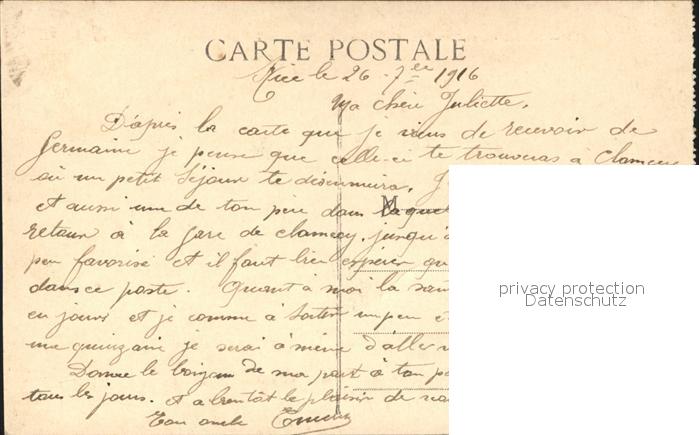 CARTE POSTALE
Nice le 26 - 7bre 1916
Ma chère Juliette,
D'après la carte que je viens de recevoir de
Germaine je pense que celle-ci te trouveras à Clamecy
où un petit séjour te désennuira. J
et aussi une de ton père dans laquel
retour à la gare de Clamecy, jusqu'
peu favorisé et il faut bien espérer qu
dans ce poste. Quant à moi la san
en jours et je comme à sortir un peu e
une quinzaine je serai à même d'aller
Donne le bonjour de ma part à ton pè
tous les jours. et a bientôt le plaisir de
Ton oncle
privacy protection
Datenschutz